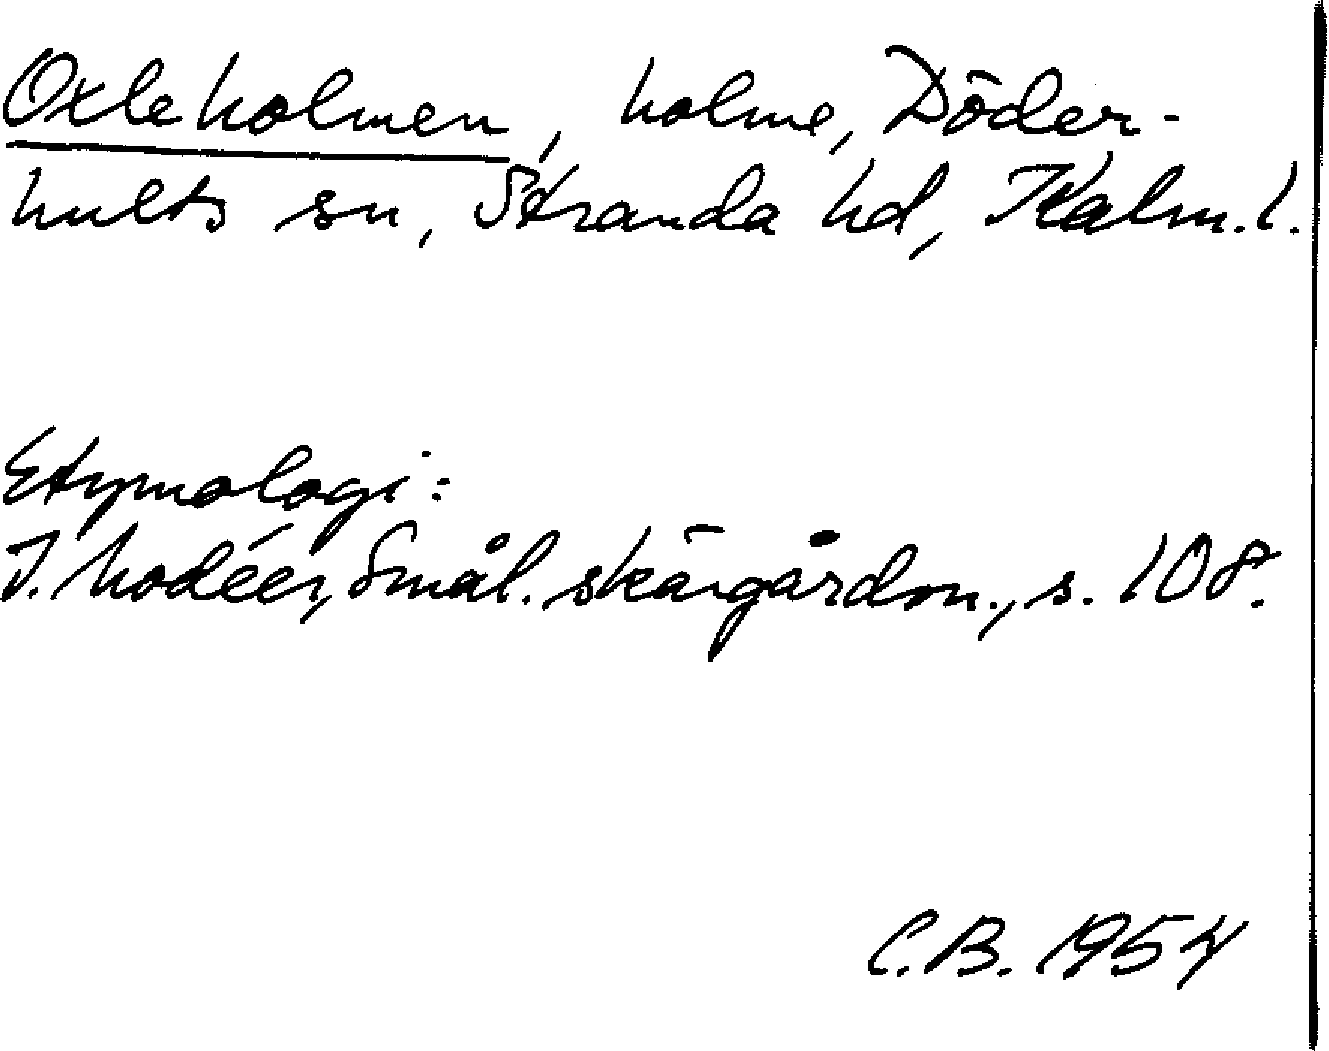 Oxleholmen, holme, Döder-
hults sn, Stranda hd, Kalm. l.
Etymologi:
I. Modéer, Smål. skärgårdsn., s. 108.
C.B. 1954